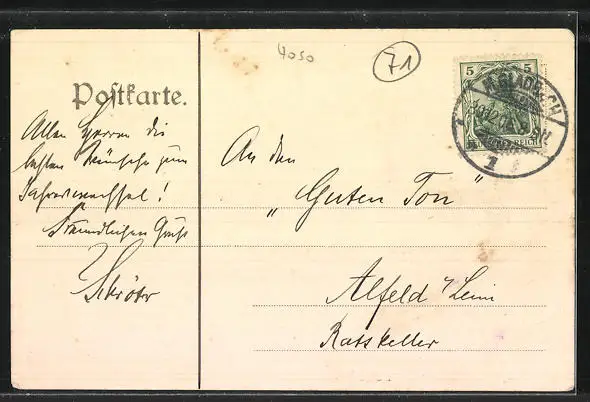 4050
71
Postkarte.
Allen Herren die
besten Wünsche zum
Jahreswechsel!
Freundlichen Gruß
Schröter
An den
„Guten Ton"
Alfeld / Leine
Ratskeller
5 5
M. GLADBACH
DEUTSCHES REICH
1